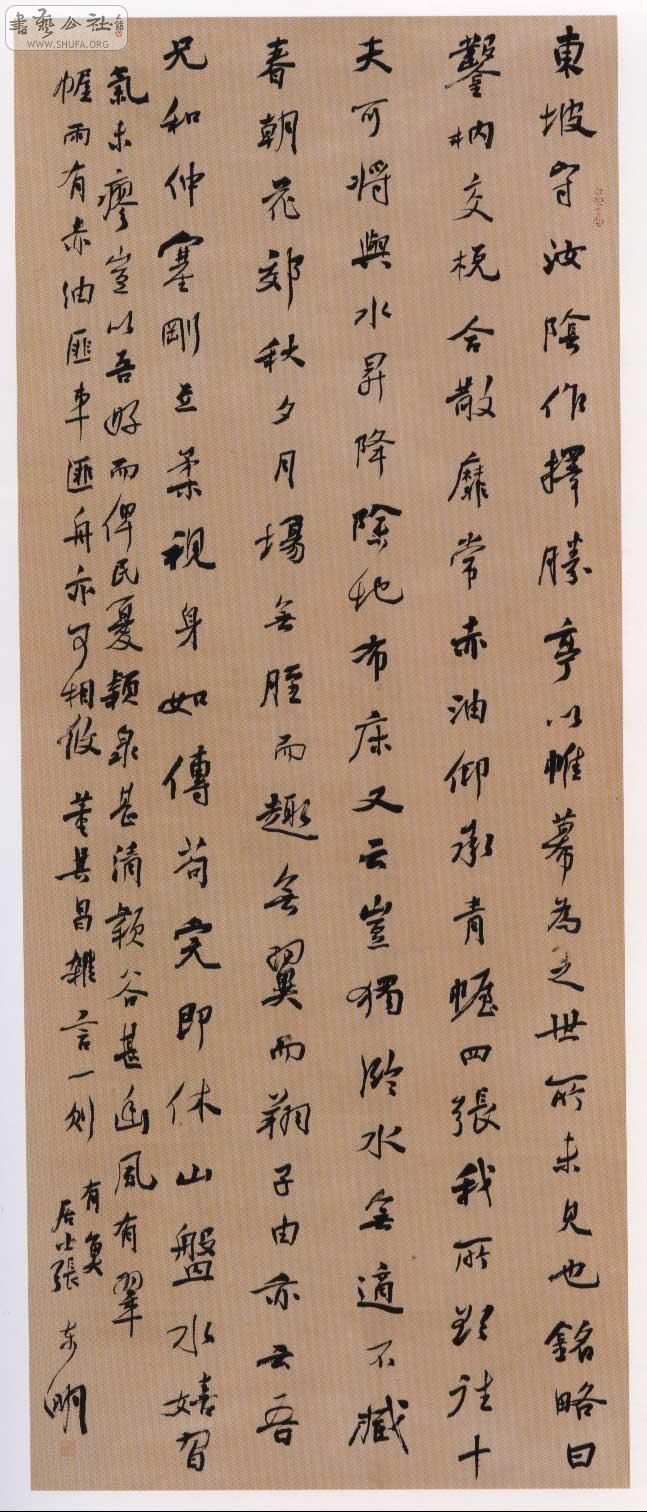 書藝公社
WWW.SHUFA.ORG
東坡守汝陰作擇勝亭以帷幕為之世所未見也銘略曰
鑿枘交梲合散靡常赤油仰承青幄四張我所欲往十
夫可將與水昇降除地布床又云豈獨臨水無適不臧
春朝花郊秋夕月場無脛而趨無翼而翔子由亦云吾
兄和仲塞剛立柔視身如傳苟完即休山盤水嬉習
氣未瘳豈以吾好而俾民憂潁泉甚清潁谷甚幽風有翠
幄雨有赤油匪車匪舟亦可相攸 董其昌雜言一則
居士張東明